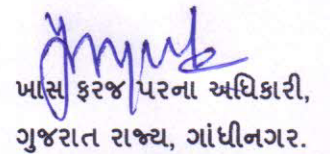 ખાસ ફરજ પરના અધિકારી,
ગુજરાત રાજ્ય, ગાંધીનગર.